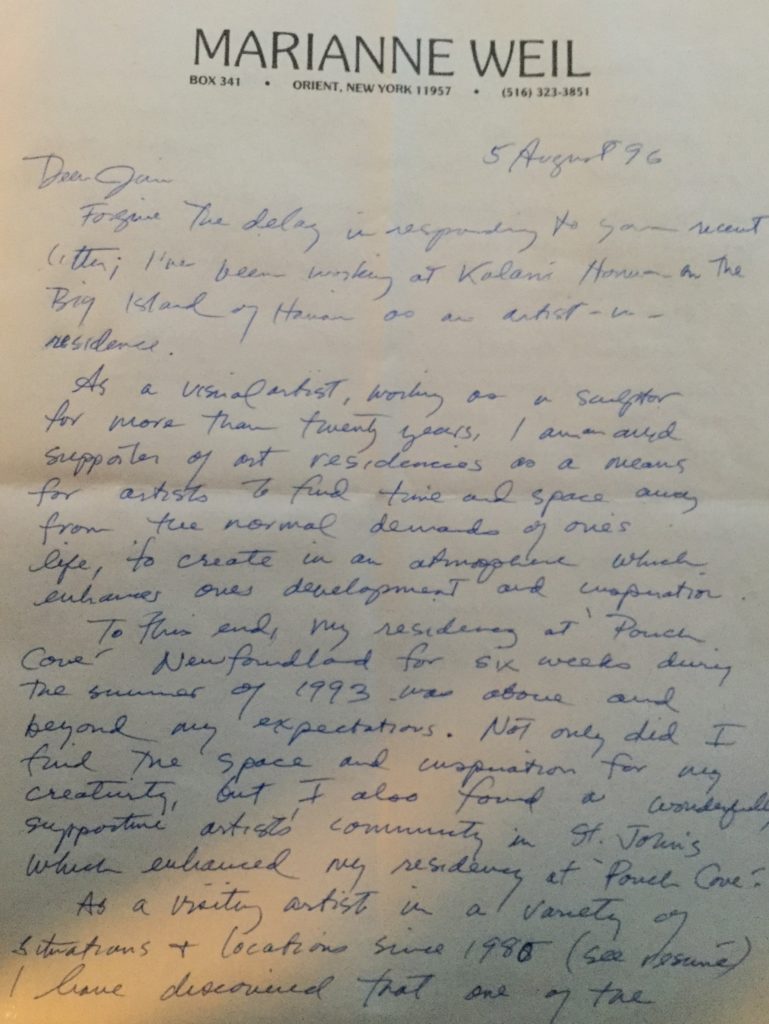 MARIANNE WEIL
BOX 341 • ORIENT, NEW YORK 11957 • (516) 323-3851
5 August 96
Dear Jim
Forgive the delay in responding to your recent
letter; I've been working at Kalani Honua on the
Big Island of Hawaii as an artist-in-
residence.
As a visual artist, working as a sculptor
for more than twenty years, I am an avid
supporter of art residencies as a means
for artists to find time and space away
from the normal demands of ones
life, to create in an atmosphere which
enhances ones development and inspiration.
To this end, my residency at 'Pouch
Cove' Newfoundland for six weeks during
the summer of 1993 was above and
beyond my expectations. Not only did I
find the space and inspiration for my
creativity, but I also found a wonderfully
supportive artists' community in St. John's
which enhanced my residency at 'Pouch Cove'.
As a visiting artist in a variety of
situations + locations since 1985 (see resumé)
I have discovered that one of the